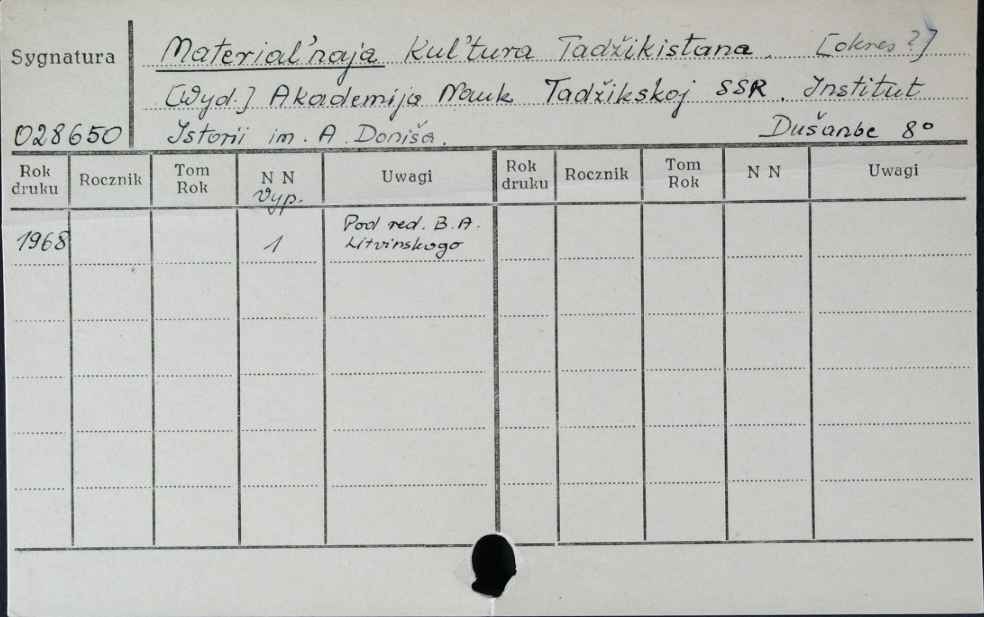 Sygnatura
Material'naja Kul'tura Tadžikistana. [okres?]
[Wyd.] Akademija Nauk Tadžikskoj SSR. Institut
028650 Istorii im. A. Doniša. Dušanbe 8°
Rok druku Rocznik Tom Rok N N Vyp. Uwagi Rok druku Rocznik Tom Rok N N Uwagi
1968 1 Pod red. B.A.
Litvinskogo